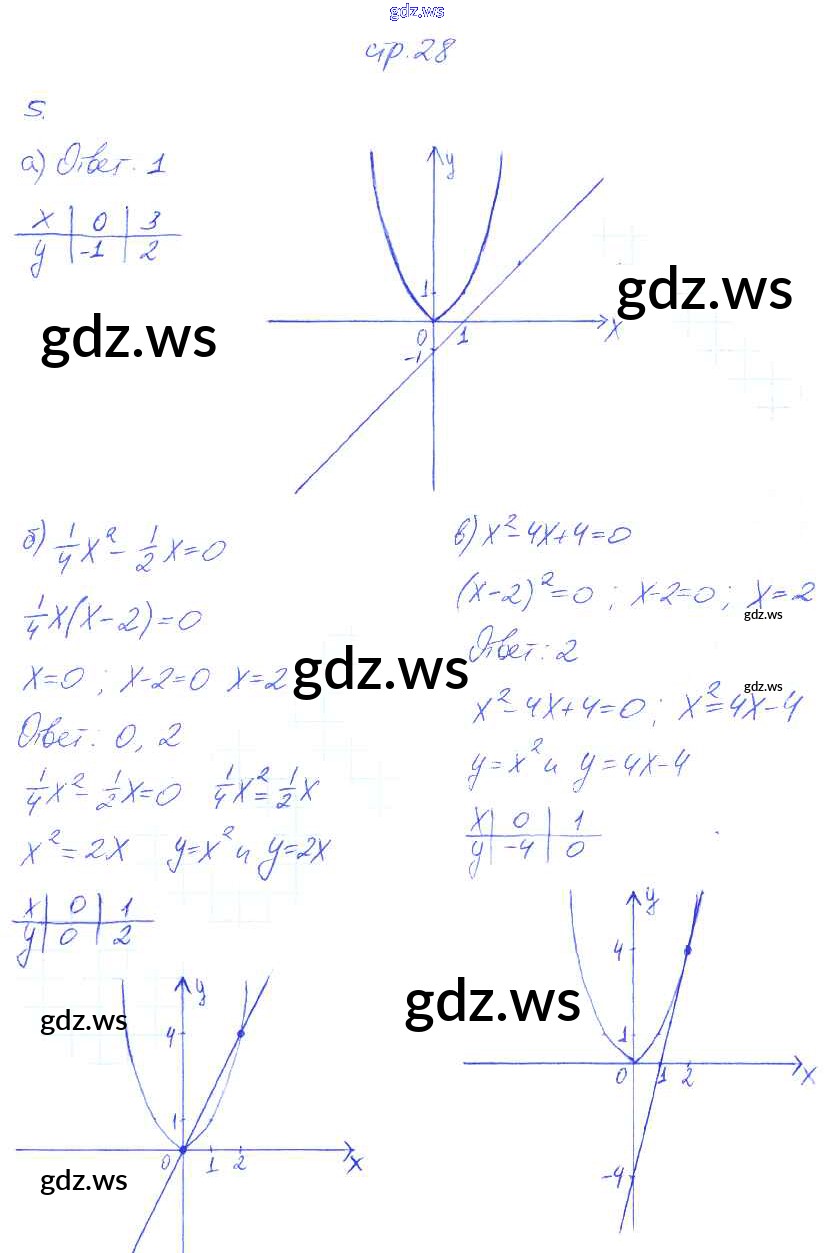 gdz.ws
стр. 28
5.
а) Ответ. 1
x | 0 | 3
y | -1 | 2
y
1
0
1
x
-1
gdz.ws
gdz.ws
б) 1/4 x² - 1/2 x = 0
1/4 x(x-2) = 0
x=0 ; x-2=0 x=2
Ответ: 0, 2
1/4 x² - 1/2 x = 0 1/4 x² = 1/2 x
x² = 2x y=x² и y=2x
x | 0 | 1
y | 0 | 2
y
4
1
0
1
2
x
gdz.ws
gdz.ws
gdz.ws
в) x²-4x+4=0
(x-2)²=0 ; x-2=0 ; x=2
gdz.ws
Ответ: 2
gdz.ws
x²-4x+4=0 ; x²=4x-4
y=x² и y=4x-4
x | 0 | 1
y | -4 | 0
y
4
1
0
1
2
x
-4
gdz.ws